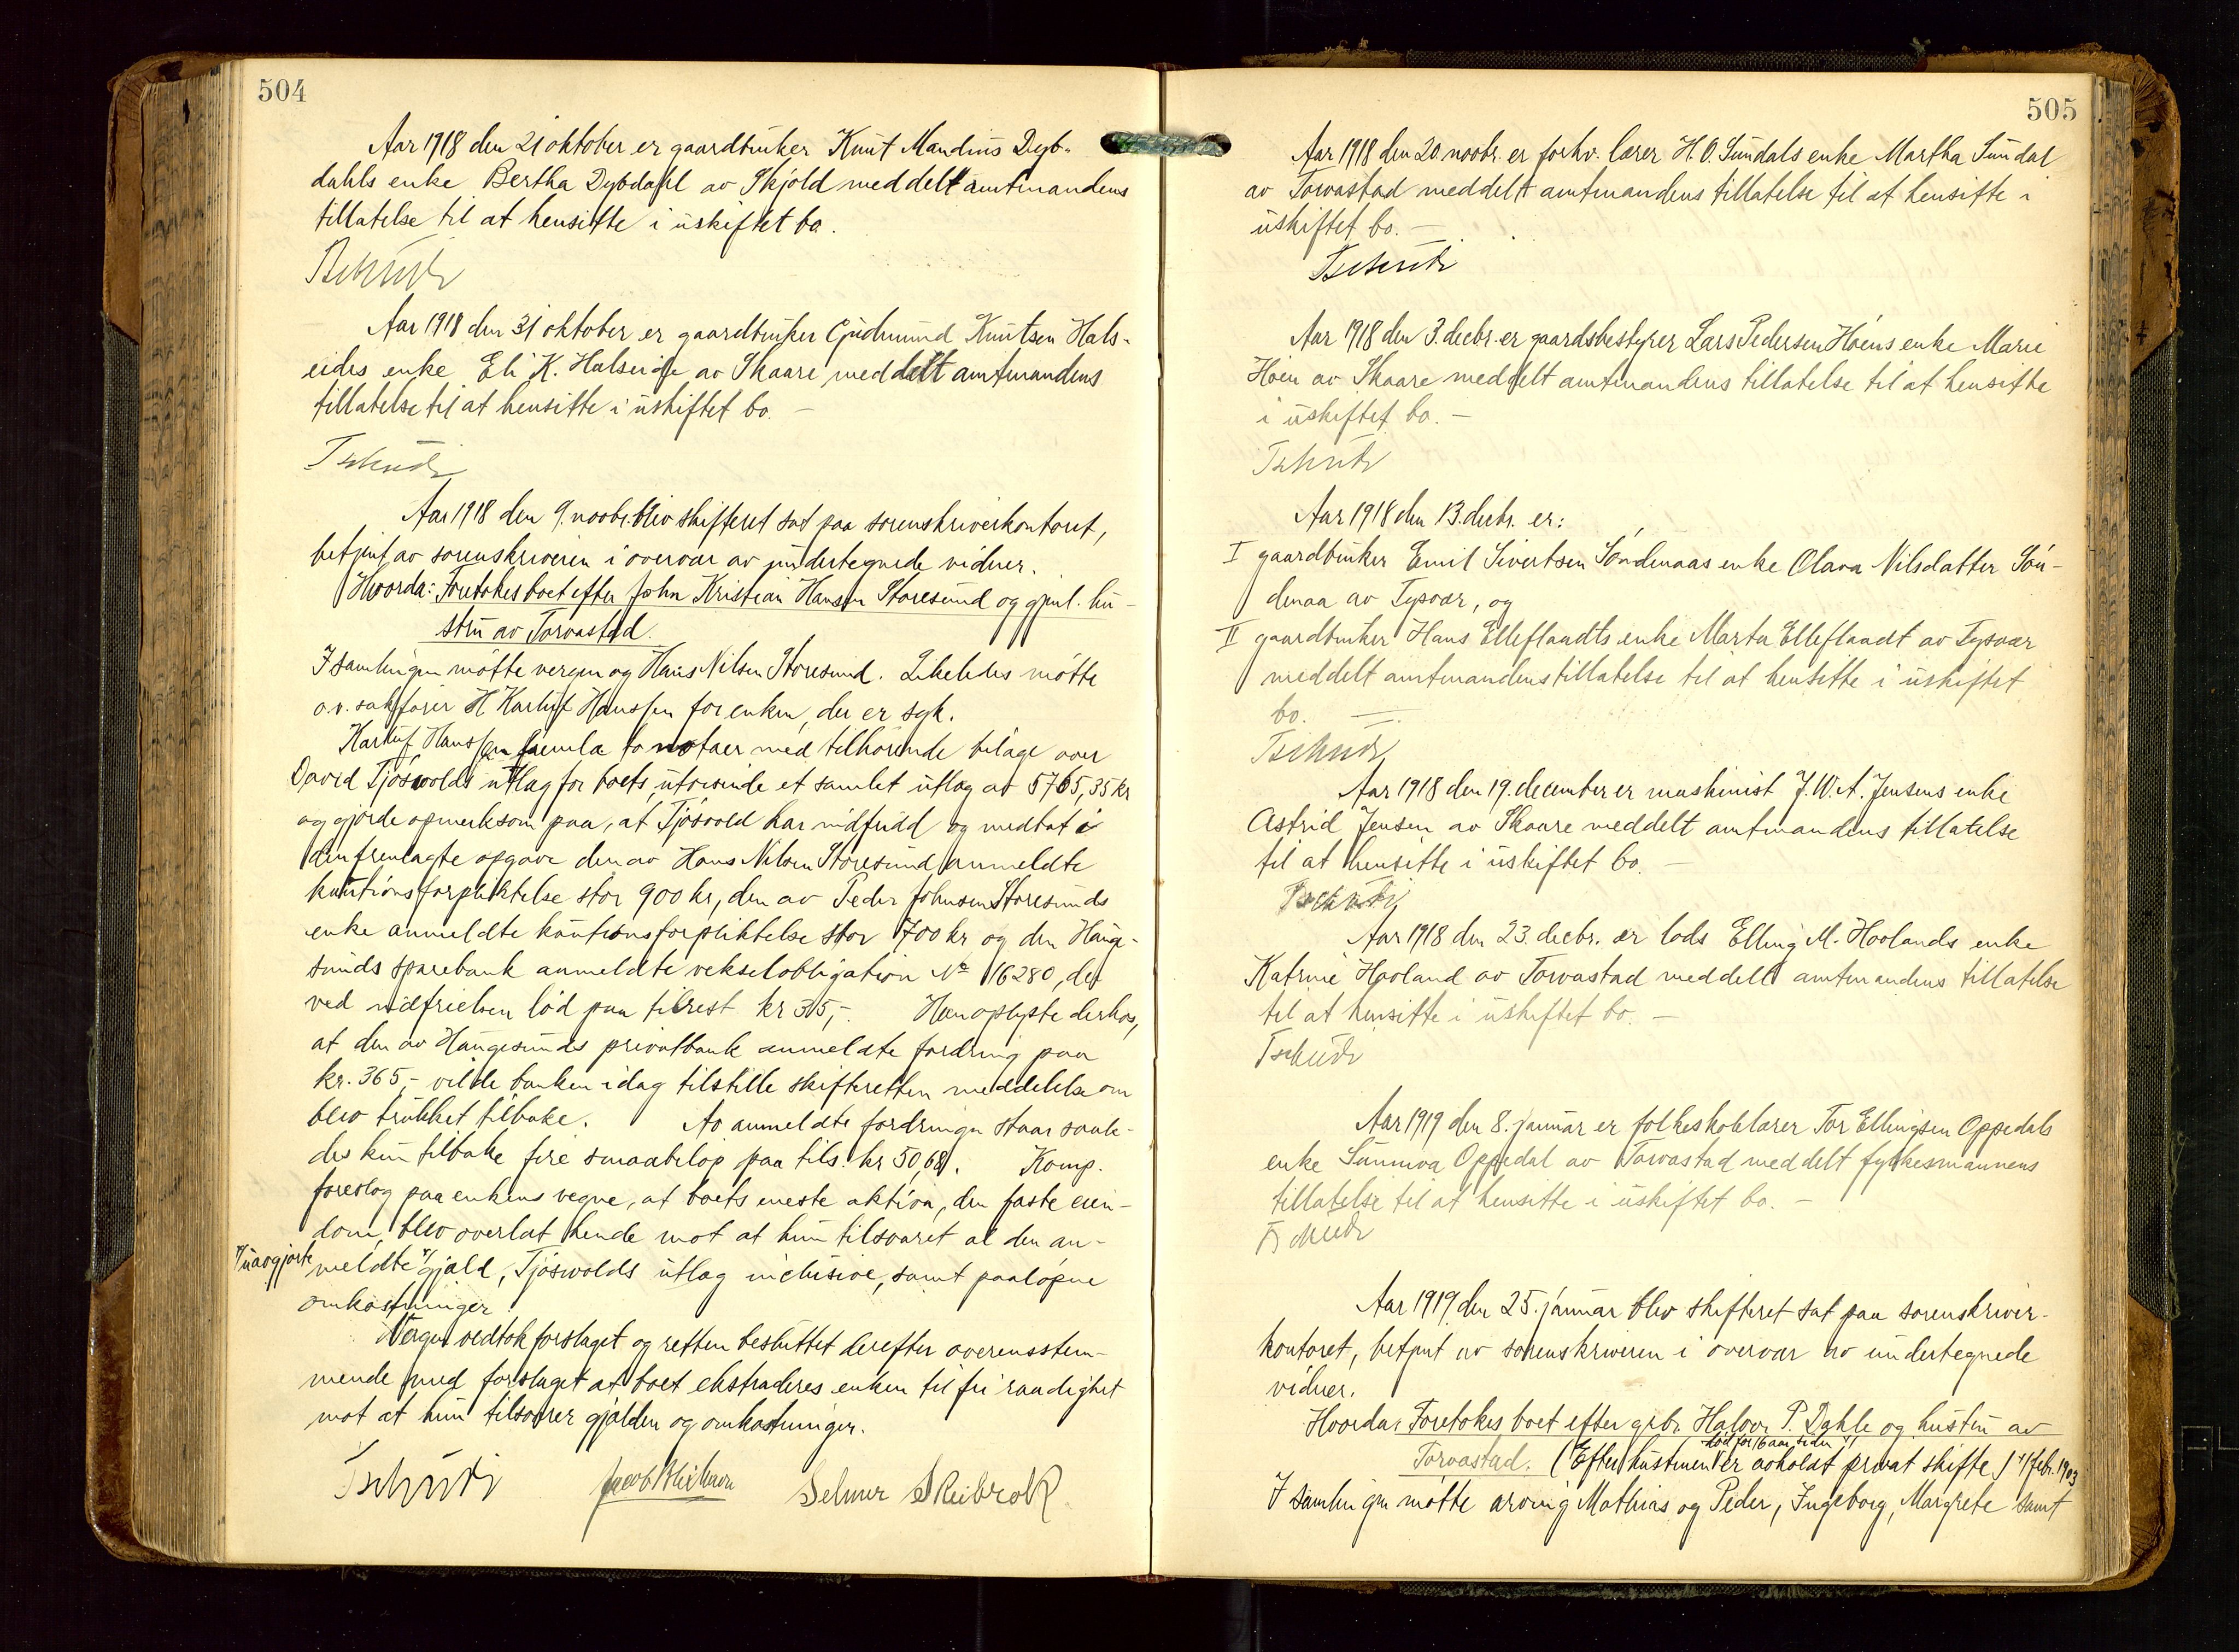 504
Aar 1918 den 21 oktober er gaardbruker Knut Mandius Dyb-
dahls enke Bertha Dybdahl av Skjold meddelt amtmandens
tillatelse til at hensitte i uskiftet bo.
Tschudi
Aar 1918 den 31 oktober er gaardbruker Gudmund Knutsen Hals-
eides enke Eli K. Halseide av Skaare meddelt amtmandens
tillatelse til at hensitte i uskiftet bo. –
Tschudi
Aar 1918 den 9. novbr. blev skifteret sat paa sorenskriverkontoret,
betjent av sorenskriveren i overvær av undertegnede vidner.
Hvorda: Foretokes boet efter John Kristian Hansen Storesund og gjenl. hu-
stru av Torvastad.
I samlingen møtte vergen og Hans Nilsen Storesund. Likeledes møtte
o.r. sakfører H Karluf Hanssen for enken, der er syk.
Karluf Hanssen fremla to notaer med tilhørende bilage over
David Tjøsvolds utlæg for boets, utvisende et samlet utlæg av 5765,35 kr
og gjorde opmerksom paa, at Tjøsvold har indfridd og medtat i
den fremlagte opgave den av Hans Nilsen Storesund anmeldte
kautionsforpliktelse stor 900 kr, den av Peder Johnsen Storesunds
enke anmeldte kautionsforpliktelse stor 700 kr og den Hauge-
sunds sparebank anmeldte vekselobligation No 16280, der
ved indfrielsen lød paa tilrest kr 315,-. Han oplyste derhos,
at den av Haugesunds privatbank anmeldte fordring paa
kr. 365,- vilde banken idag tilstille skifteretten meddelelse om
blev trukket tilbake. Av anmeldte fordringer staar saale-
des kun tilbake fire smaabeløp paa tils. kr 50,68. Komp.
foreslog paa enkens vegne, at boets eneste aktiva, den faste eien-
dom, blev overlat hende mot at hun tilsvaret al den an-
meldte */ gjæld, Tjøsvolds utlæg inclusive, samt paaløpne
*/ uavgjorte
omkostninger.
Vergen vedtok forslaget og retten besluttet derefter overensstem-
mende med forslaget at boet ekstraderes enken til fri raadighet
mot at hun tilsvarer gjælden og omkostninger.
Tschudi Jacob Selmer Skeibrok
505
Aar 1918 den 20. novbr. er forhv. lærer H. O. Sundals enke Martha Sundal
av Torvastad meddelt amtmandens tillatelse til at hensitte i
uskiftet bo. –
Tschudi
Aar 1918 den 3. decbr. er gaardsbestyrer Lars Pedersen Høiens enke Marie
Høien av Skaare meddelt amtmandens tillatelse til at hensitte
i uskiftet bo. –
Tschudi
Aar 1918 den 13. decbr. er:
I gaardbruker Emil Sivertsen Søndenaas enke Olava Nilsdatter Søn-
denaa av Tysvær, og
II gaardbruker Hans Elleflaadts enke Marta Elleflaadt av Tysvær
meddelt amtmandens tillatelse til at hensitte i uskiftet
bo. –
Tschudi
Aar 1918 den 19. december er maskinist J. W. A. Jensens enke
Astrid Jensen av Skaare meddelt amtmandens tillatelse
til at hensitte i uskiftet bo. –
Tschudi
Aar 1918 den 23. decbr. er lods Elling M. Hovlands enke
Katrine Hovland av Torvastad meddelt amtmandens tillatelse
til at hensitte i uskiftet bo. –
Tschudi
Aar 1919 den 8. januar er folkeskolelærer Tor Ellingsen Oppedals
enke Sunniva Oppedal av Torvastad meddelt fylkesmannens
tillatelse til at hensitte i uskiftet bo. –
Tschudi
Aar 1919 den 25. januar blev skifteret sat paa sorenskriver-
kontoret, betjent av sorenskriveren i overvær av undertegnede
vidner.
Hvorda: Foretokes boet efter grbr. Halvor P. Dahle og hustru av
død for 16 aar siden
Torvastad. (Efter hustruen er avholdt privat skifte) */ febr. 1903
I samlingen møtte arving Mathias og Peder, Ingeborg, Margrete samt